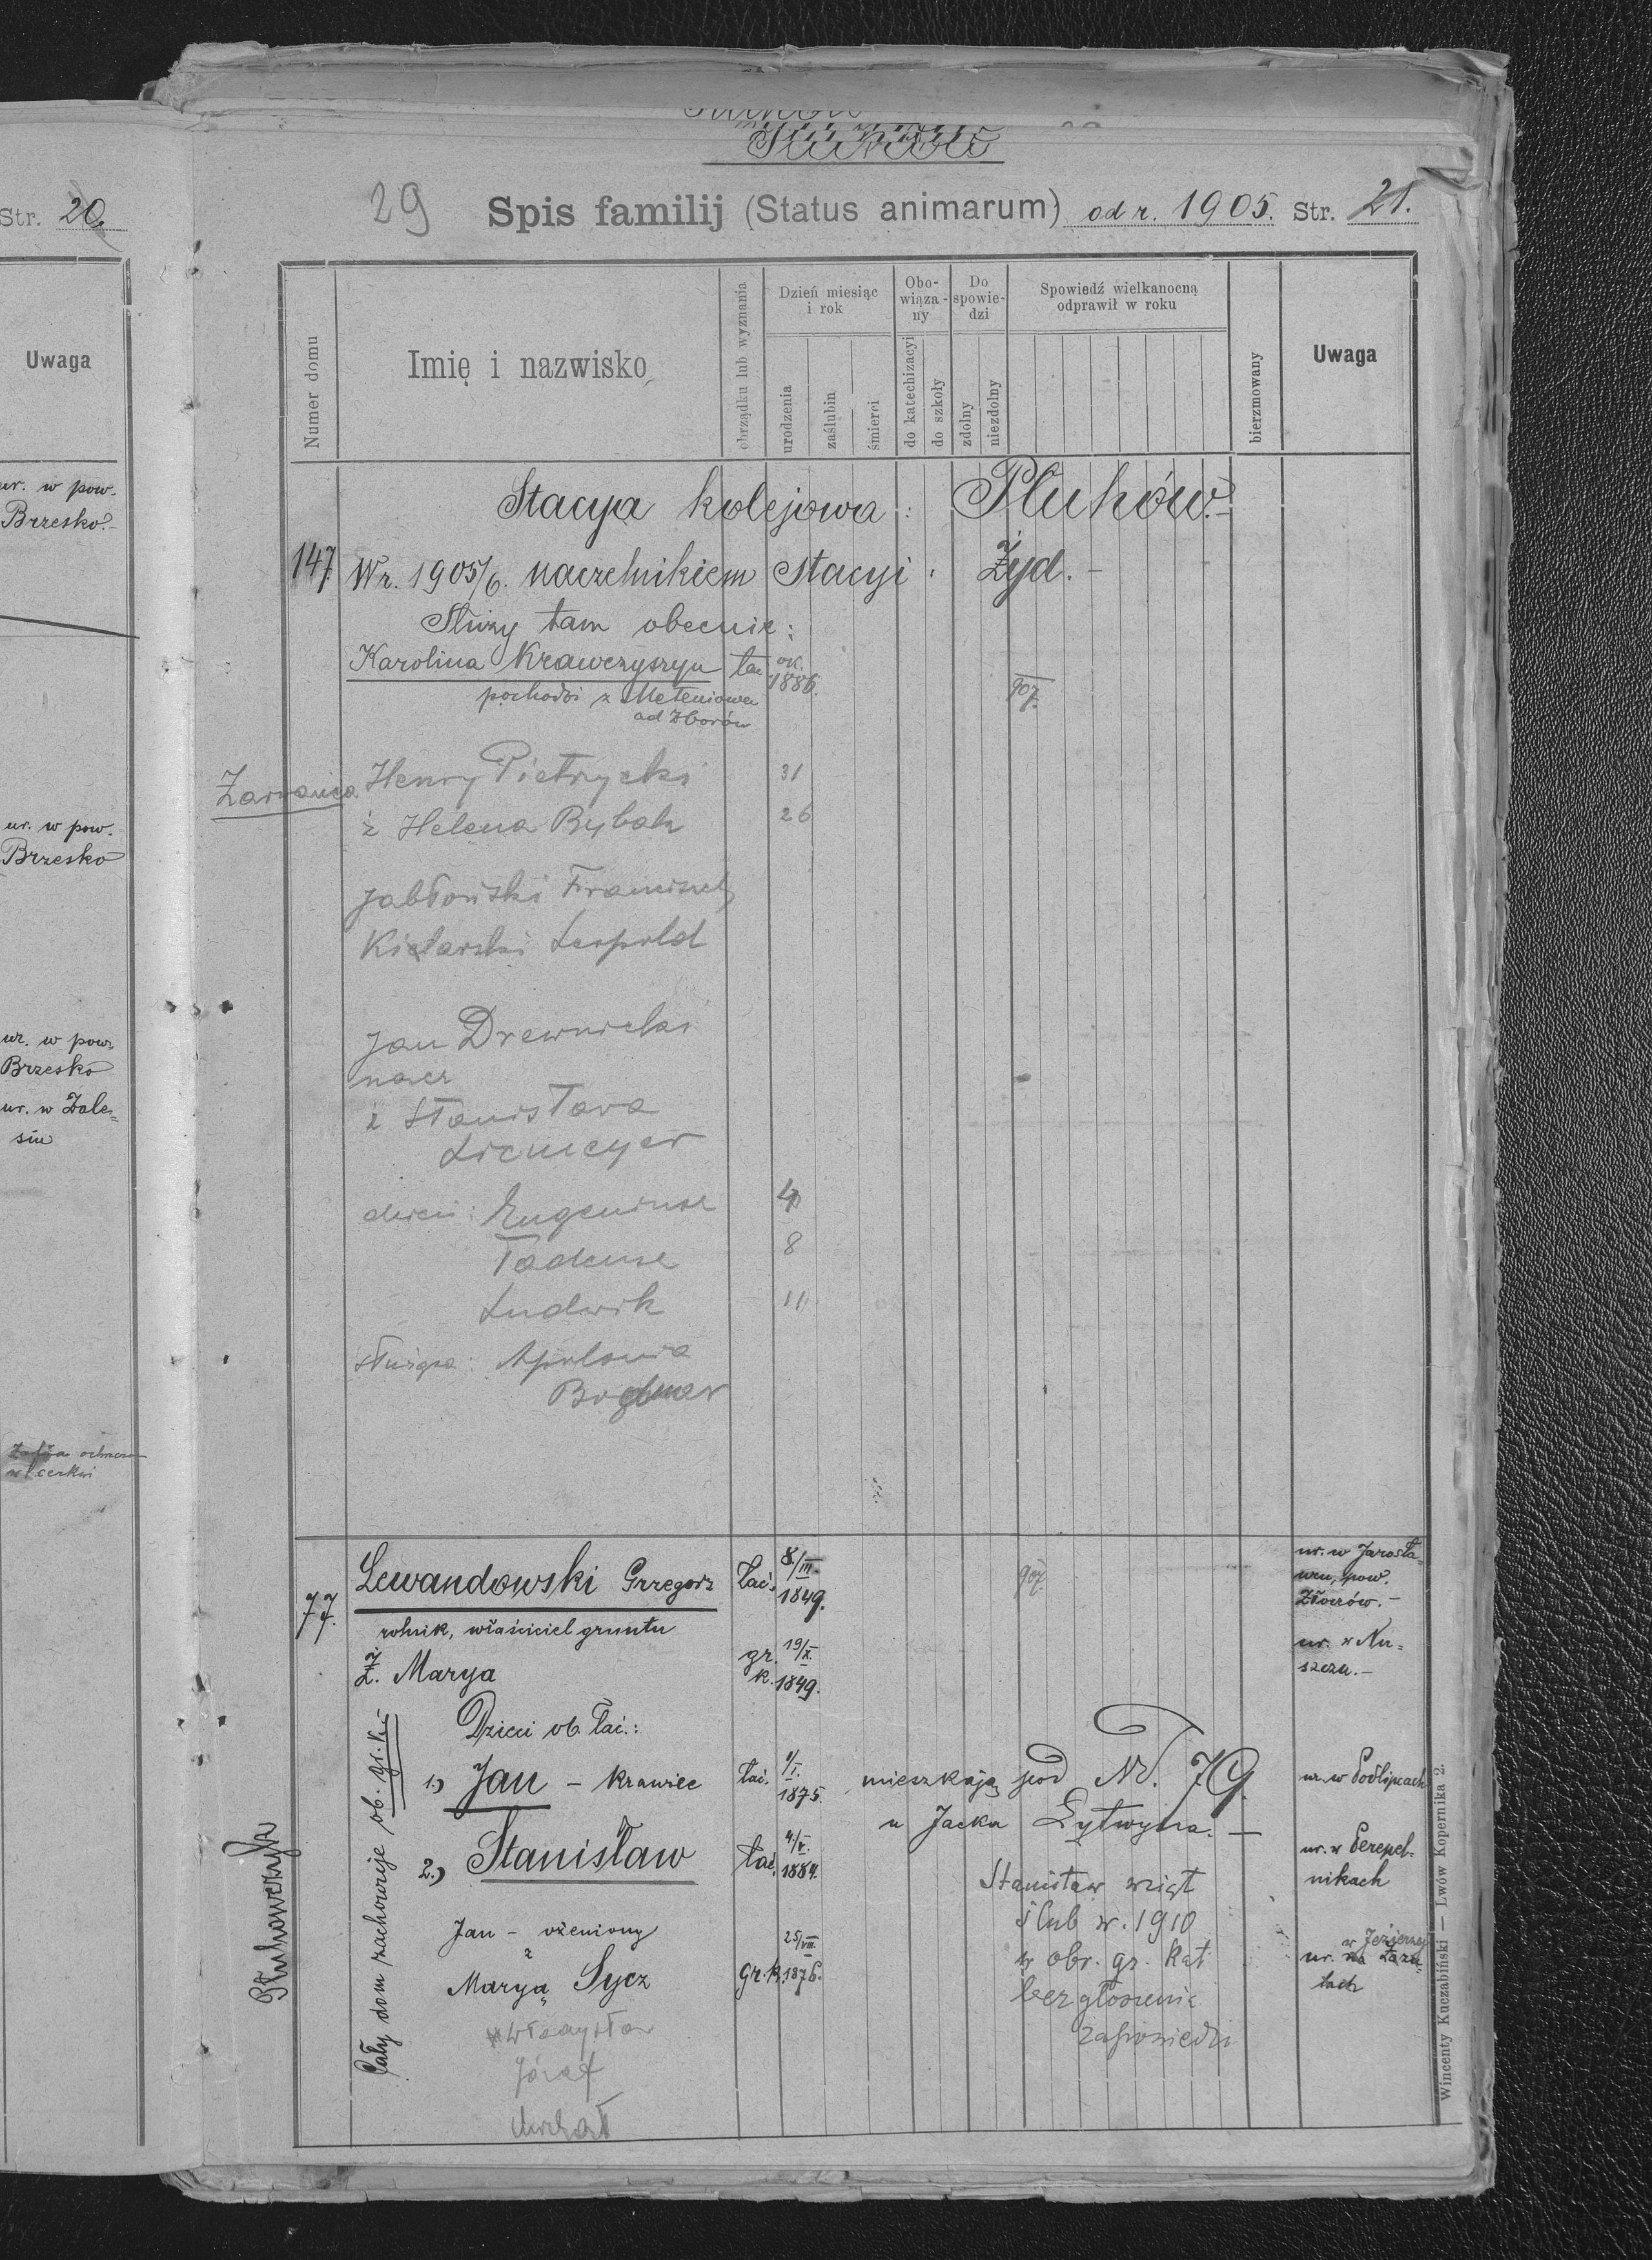 Str. 20
Uwaga
ur. w pow.
Brzesko.-
ur. w pow.
Brzesko
ur. w pow.
Brzesko
ur. w Zale=
siu
w cerkwi
Płuhów
29 Spis familij (Status animarum) od r. 1905. Str. 21.
Numer domu
Imię i nazwisko
obrządku lub wyznania
Dzień miesiąc i rok
urodzenia
zaślubin
śmierci
Obo-wiąza-ny
do katechizacyi
do szkoły
Do spowie-dzi
zdolny
niezdolny
Spowiedź wielkanocną odprawił w roku
bierzmowany
Uwaga
Stacya kolejowa: Płuhów.-
147. W r. 1905/6. naczelnikiem stacyi: Żyd.-
Służy tam obecnie:
Karolina Krawczyszyn łac ok. 1886. 907.
pochodzi z Meteniowa
ad Zborów
Zarwanica Henry Pietrzycki 31
ż Helena Rybak 26
Jabłoński Franciszek
Kielarski Leopold
Jan Drewnicki
nacz
ż Stanisława
dzieci: Eugeniusz 4
Tadeusz 8
Ludwik 11
służąca: Apolonia
77. Lewandowski Grzegorz łać. 8/III. 1849. 907. ur. w Jarosła=
wcu, pow.
Złoczów.-
rolnik, właściciel gruntu
Ż. Marya gr. k. 19/X. 1849. ur. w Ku=
szcza.-
Dzieci ob. łać.:
1.) Jan - krawiec łać. 1/I. 1875. mieszkają pod Nr. 79. ur. w Podlipcach
u Jacka Łytwyna.-
2.) Stanisław łać. 4/V. 1884. ur. w Perepel=
nikach
Stanisław wziął
ślub w r. 1910
w obr. gr. kat
bez głoszenia
zapowiedzi
Jan - ożeniony
z
Maryą Sycz gr. k. 25/VII. 1876. w Jezierny
ur. na Łazu=
łach
Władysław
Józef
Michał
Cały dom zachowuje ob. gr. k.-
Płuhowerska
Wincenty Kuczabiński — Lwów Kopernika 2.